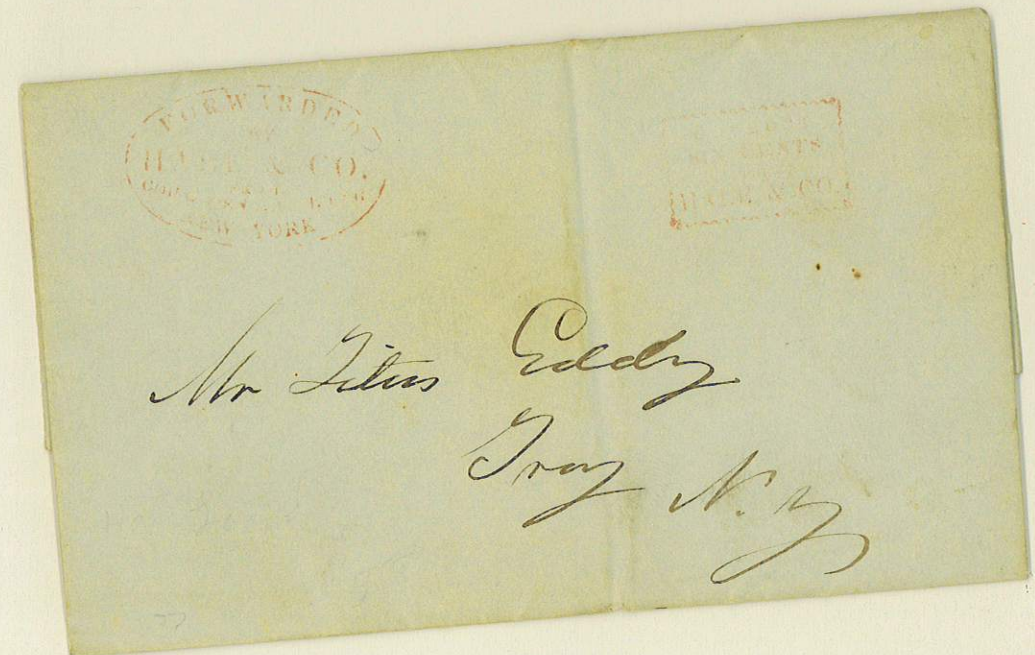 FORWARDED
BY
HALE & CO.
NEW YORK
SIX CENTS
HALE & CO.
Mr Titus Eddy
Troy
N. Y